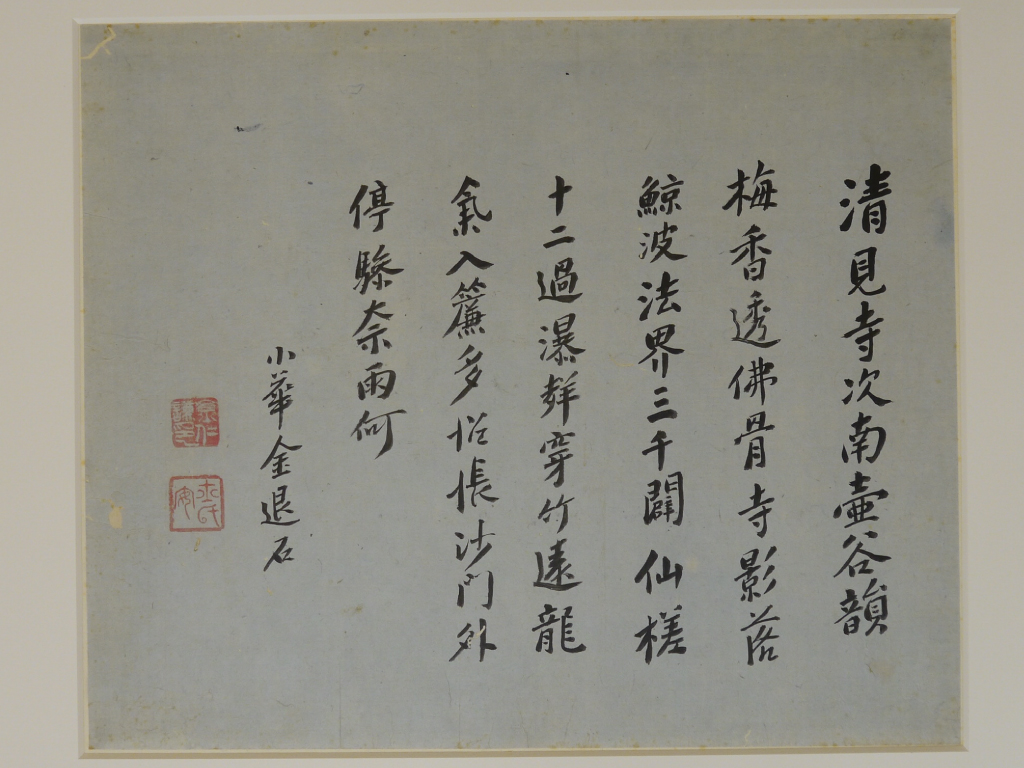 清見寺次南壺谷韻
梅香透佛骨寺影落
鯨波法界三千闢仙槎
十二過瀑聲穿竹遠龍
氣入簾多怊悵沙門外
停驂奈雨何
小華金退石
金仁謙印